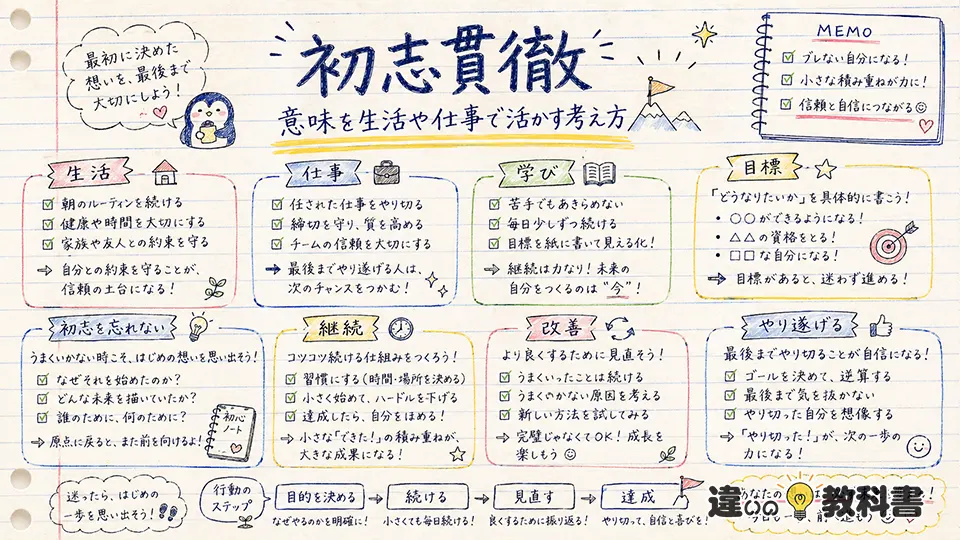 最初に決めた
想いを、最後まで
大切にしよう!
初志貫徹
意味を生活や仕事で活かす考え方
MEMO
ブレない自分になる!
小さな積み重ねが力に!
信頼と自信につながる
生活
朝のルーティンを続ける
健康や時間を大切にする
家族や友人との約束を守る
⇒ 自分との約束を守ることが、
信頼の土台になる!
仕事
任された仕事をやり切る
締切を守り、質を高める
チームの信頼を大切にする
→ 最後までやり遂げる人は、
次のチャンスをつかむ!
学び
苦手でもあきらめない
毎日少しずつ続ける
目標を紙に書いて見える化!
⇒ 継続は力なり! 未来の
自分をつくるのは“今”!
目標
「どうなりたいか」を具体的に書こう!
• ○○ができるようになる!
• △△の資格をとる!
• □□な自分になる!
→ 目標があると、迷わず進める!
初志を忘れない
うまくいかない時こそ、はじめの想いを思い出そう!
なぜそれを始めたのか?
どんな未来を描いていたか?
誰のために、何のために?
→ 原点に戻ると、また前を向けるよ!
初心
ノート
継続
コツコツ続ける仕組みをつくろう!
習慣にする(時間・場所を決める)
小さく始めて、ハードルを下げる
達成したら、自分をほめる!
⇒ 小さな「できた!」の積み重ねが、
大きな成果になる!
改善
より良くするために見直そう!
うまくいったことは続ける
うまくいかない原因を考える
新しい方法を試してみる
⇒ 完璧じゃなくてOK! 成長を
楽しもう
やり遂げる
最後までやり切ることが自信になる!
ゴールを決めて、逆算する
最後まで気を抜かない
やり切った自分を想像する
⇒ 「やり切った!」が、次の一歩の
力になる!
迷ったら、はじめの
一歩を思い出そう!
行動の
ステップ
目的を決める → 続ける → 見直す → 達成
なぜやるのかを明確に! 小さくても毎日続ける! 良くするために振り返る! やり切って、自信と喜びを!
あなたの
違いの教科書